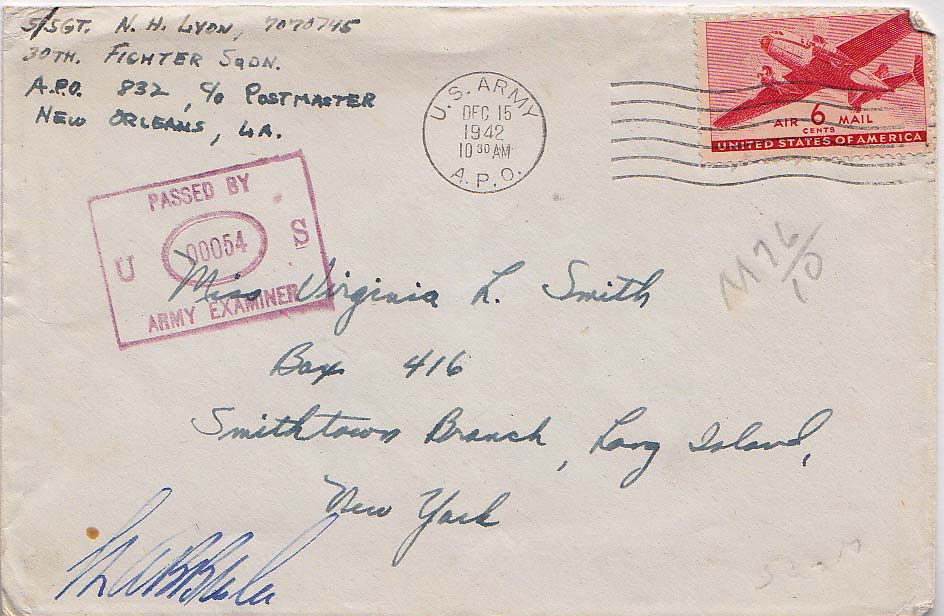 S/SGT. N. H. LYON, 7070745
30TH. FIGHTER SQDN.
A.P.O. 832, c/o POSTMASTER
NEW ORLEANS, LA.
U.S. ARMY
DEC 15
1942
10 30 AM
A.P.O.
AIR 6 MAIL
CENTS
UNITED STATES OF AMERICA
PASSED BY
U 00054 S
ARMY EXAMINER
M76/10
Miss Virginia L. Smith
Box 416
Smithtown Branch, Long Island,
New York